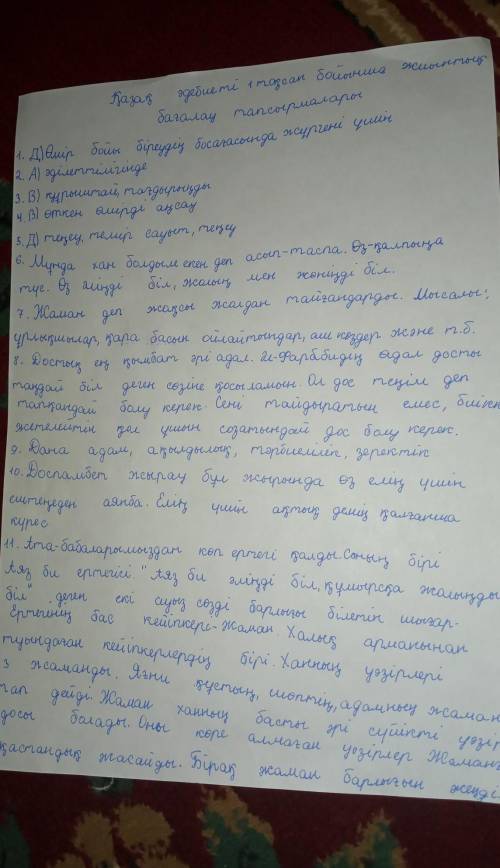 Қазақ әдебиеті 1 тоқсан бойынша жиынтық
бағалау тапсырмалары
1. Д) Өмір бойы біреудің босағасында жүргені үшін
2. А) әділеттілігінде
3. В) құрыштай, таңдырыңды
4. В) өткен өмірді аңсау
5. Д) теңеу, темір сауыт, теңеу
6. Мұнда хан болдым екен деп асып-таспа. Өз-қалпыңа
түс. Өз әліңді біл, жайың мен жөніңді біл.
7. Жаман деп жақсы жолдан тайғандарды. Мысалы:
ұрлықшылар, қара басын ойлайтындар, аш көздер және т.б.
8. Достық ең қымбат әрі адал. Әл-Фарббидің адал досты
таңдай біл деген сөзіне қосыламын. Ол дос теңім деп
тапқандай болу керек. Сені тайдыратын емес, биікке
жетелейтін қол ұшын созатындай дос болу керек.
9. Дана адам, ақылдылық, тәрбиелілік, зеректік
10. Доспамбет жырау бұл жырында өз елің үшін
ештеңеден аянба. Елің үшін ақтық демің қалғанша
күрес
11. Ата-бабаларымыздан көп ертегі қалды. Соның бірі
Аяз би ертегісі. "Аяз би әліңді біл, құмырсқа жолыңды
біл" деген екі ауыз сөзді барлығы білетін шығар.
Ертегінің бас кейіпкері-Жаман. Халық арманынан
туындаған кейіпкерлердің бірі. Ханның уәзірлері
3 жаманды. Яғни құстың, шөптің, адамның жаман
тап дейді. Жаман ханның басты әрі сүйікті уәзір
досы болады. Оны көре алмаған уәзірлер Жаманға
қастандық жасайды. Бірақ жаман барлығын жеңді